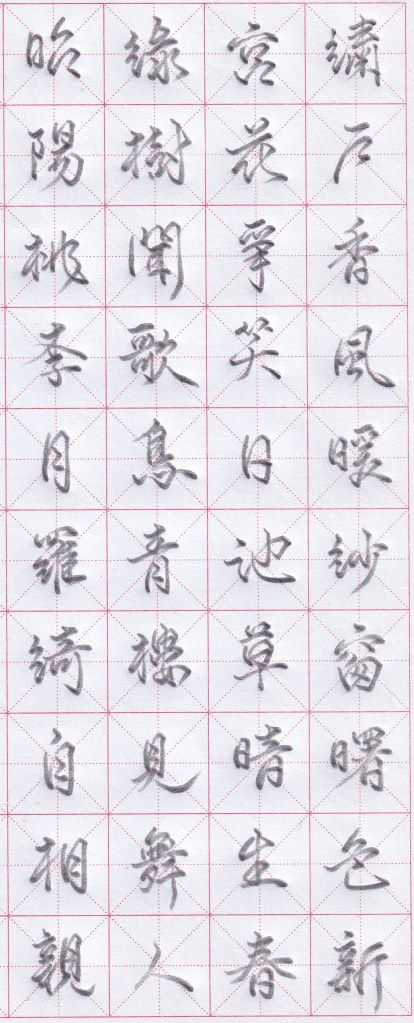 繡戶香風暖紗窗曙色新
宮花爭笑日池草暗生春
綠樹聞歌鳥青樓見舞人
昭陽桃李月羅綺自相親